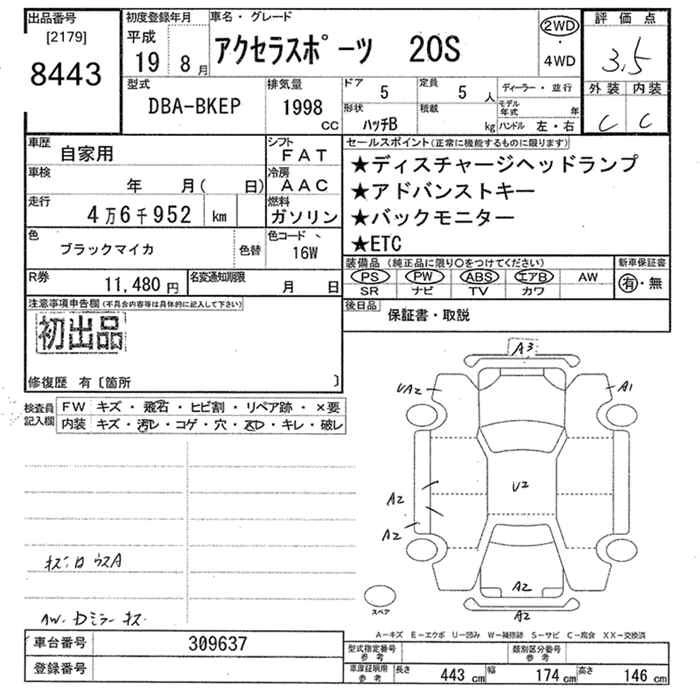 出品番号
[2179]
8443
初度登録年月
平成
19 8月
車名・グレード
アクセラスポーツ 20S
2WD
・
4WD
評価点
3.5
外装 内装
C C
型式
DBA-BKEP
排気量
1998
CC
ドア
5
定員
5人
形状
ハッチB
積載
kg
ディーラー・並行
モデル年式 年
ハンドル 左・右
車歴
自家用
シフト
FAT
車検
年 月( 日)
冷房
AAC
走行
4万6千952 km
燃料
ガソリン
色
ブラックマイカ
色替
色コード
16W
R券
11,480円
名変通知期限
月 日
セールスポイント(正常に機能するものに限ります)
★ディスチャージヘッドランプ
★アドバンストキー
★バックモニター
★ETC
装備品(純正品に限り○をつけてください)
PS PW ABS エアB AW
SR ナビ TV カワ
新車保証書
有・無
後日品
保証書・取説
注意事項申告欄(不具合内容等は具体的に記入して下さい)
初出品
修復歴 有〔箇所 〕
検査員
記入欄
FW キズ・飛石・ヒビ割・リペア跡・×要
内装 キズ・汚レ・コゲ・穴・スレ・キレ・破レ
A3
UA2
A1
A2
U2
A2
A2
A2
スペア
AW・Dミラーキズ
A−キズ E−エクボ U−凹み W−補修跡 S−サビ C−腐食 XX−交換済
車台番号
309637
登録番号
型式指定番号
参考
類別区分番号
参考
車庫証明用
参考
長さ 443 cm
幅 174 cm
高さ 146 cm